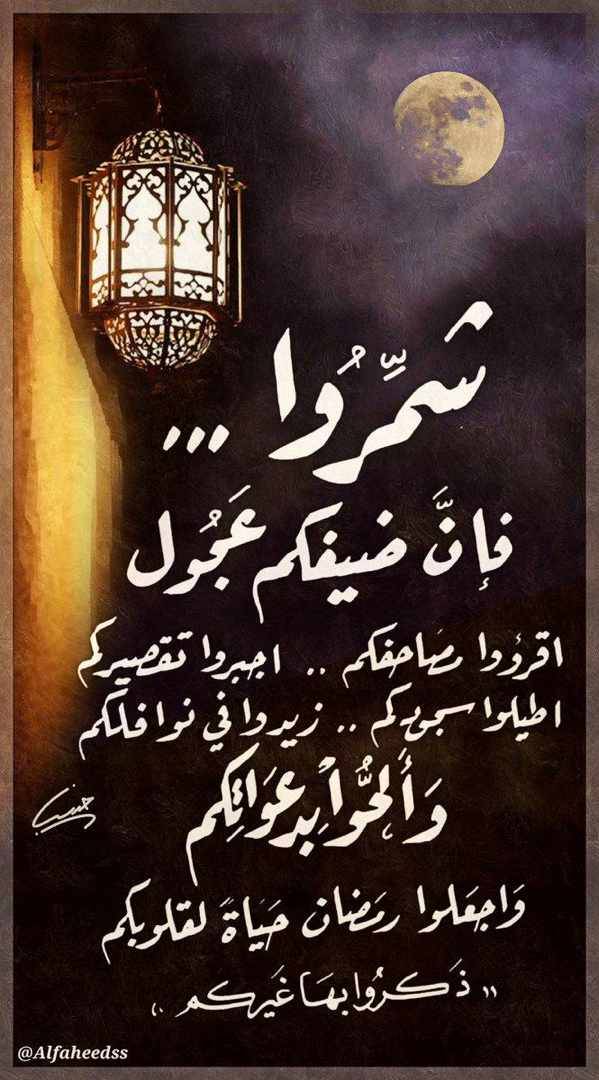 شَمِّرُوا ...
فإنَّ ضيفكم عَجُول
اقرؤوا مصَاحفكم .. اجبروا تقصيركم
اطيلوا سجودكم .. زيدوا في نوافلكم
وَأَلِحُّوا بِدعَوَاتِكم
وَاجعَلوا رمَضان حيَاةً لقلوبكم
" ذَكرُوا بهَا غَيركم "
@Alfaheedss